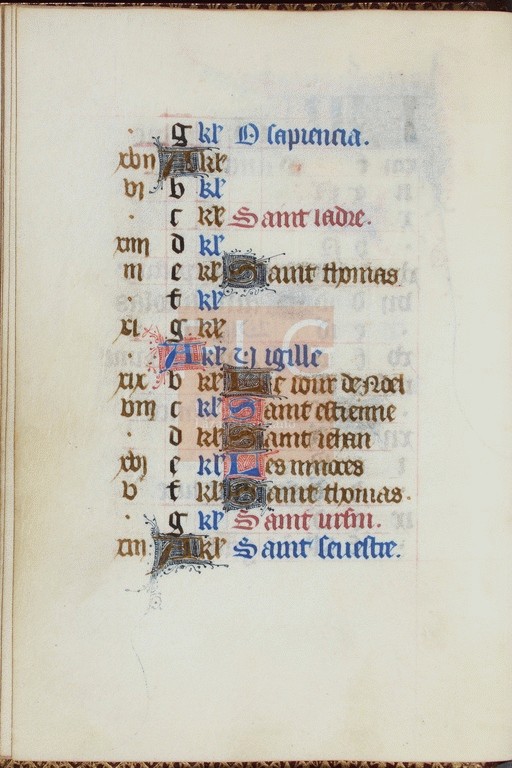 g kl' O sapiencia.
xvii A kl'
vi b kl'
c kl' Saint ladre.
xiiii d kl'
iii e kl' Saint thomas
f kl'
xi g kl'
A kl' Vigille
xix b kl' Le iour de Noel
viii c kl' Saint estienne
d kl' Saint iehan
xvi e kl' Les innoces
v f kl' Saint thomas.
g kl' Saint ursin.
xiii A kl' Saint seuestre.